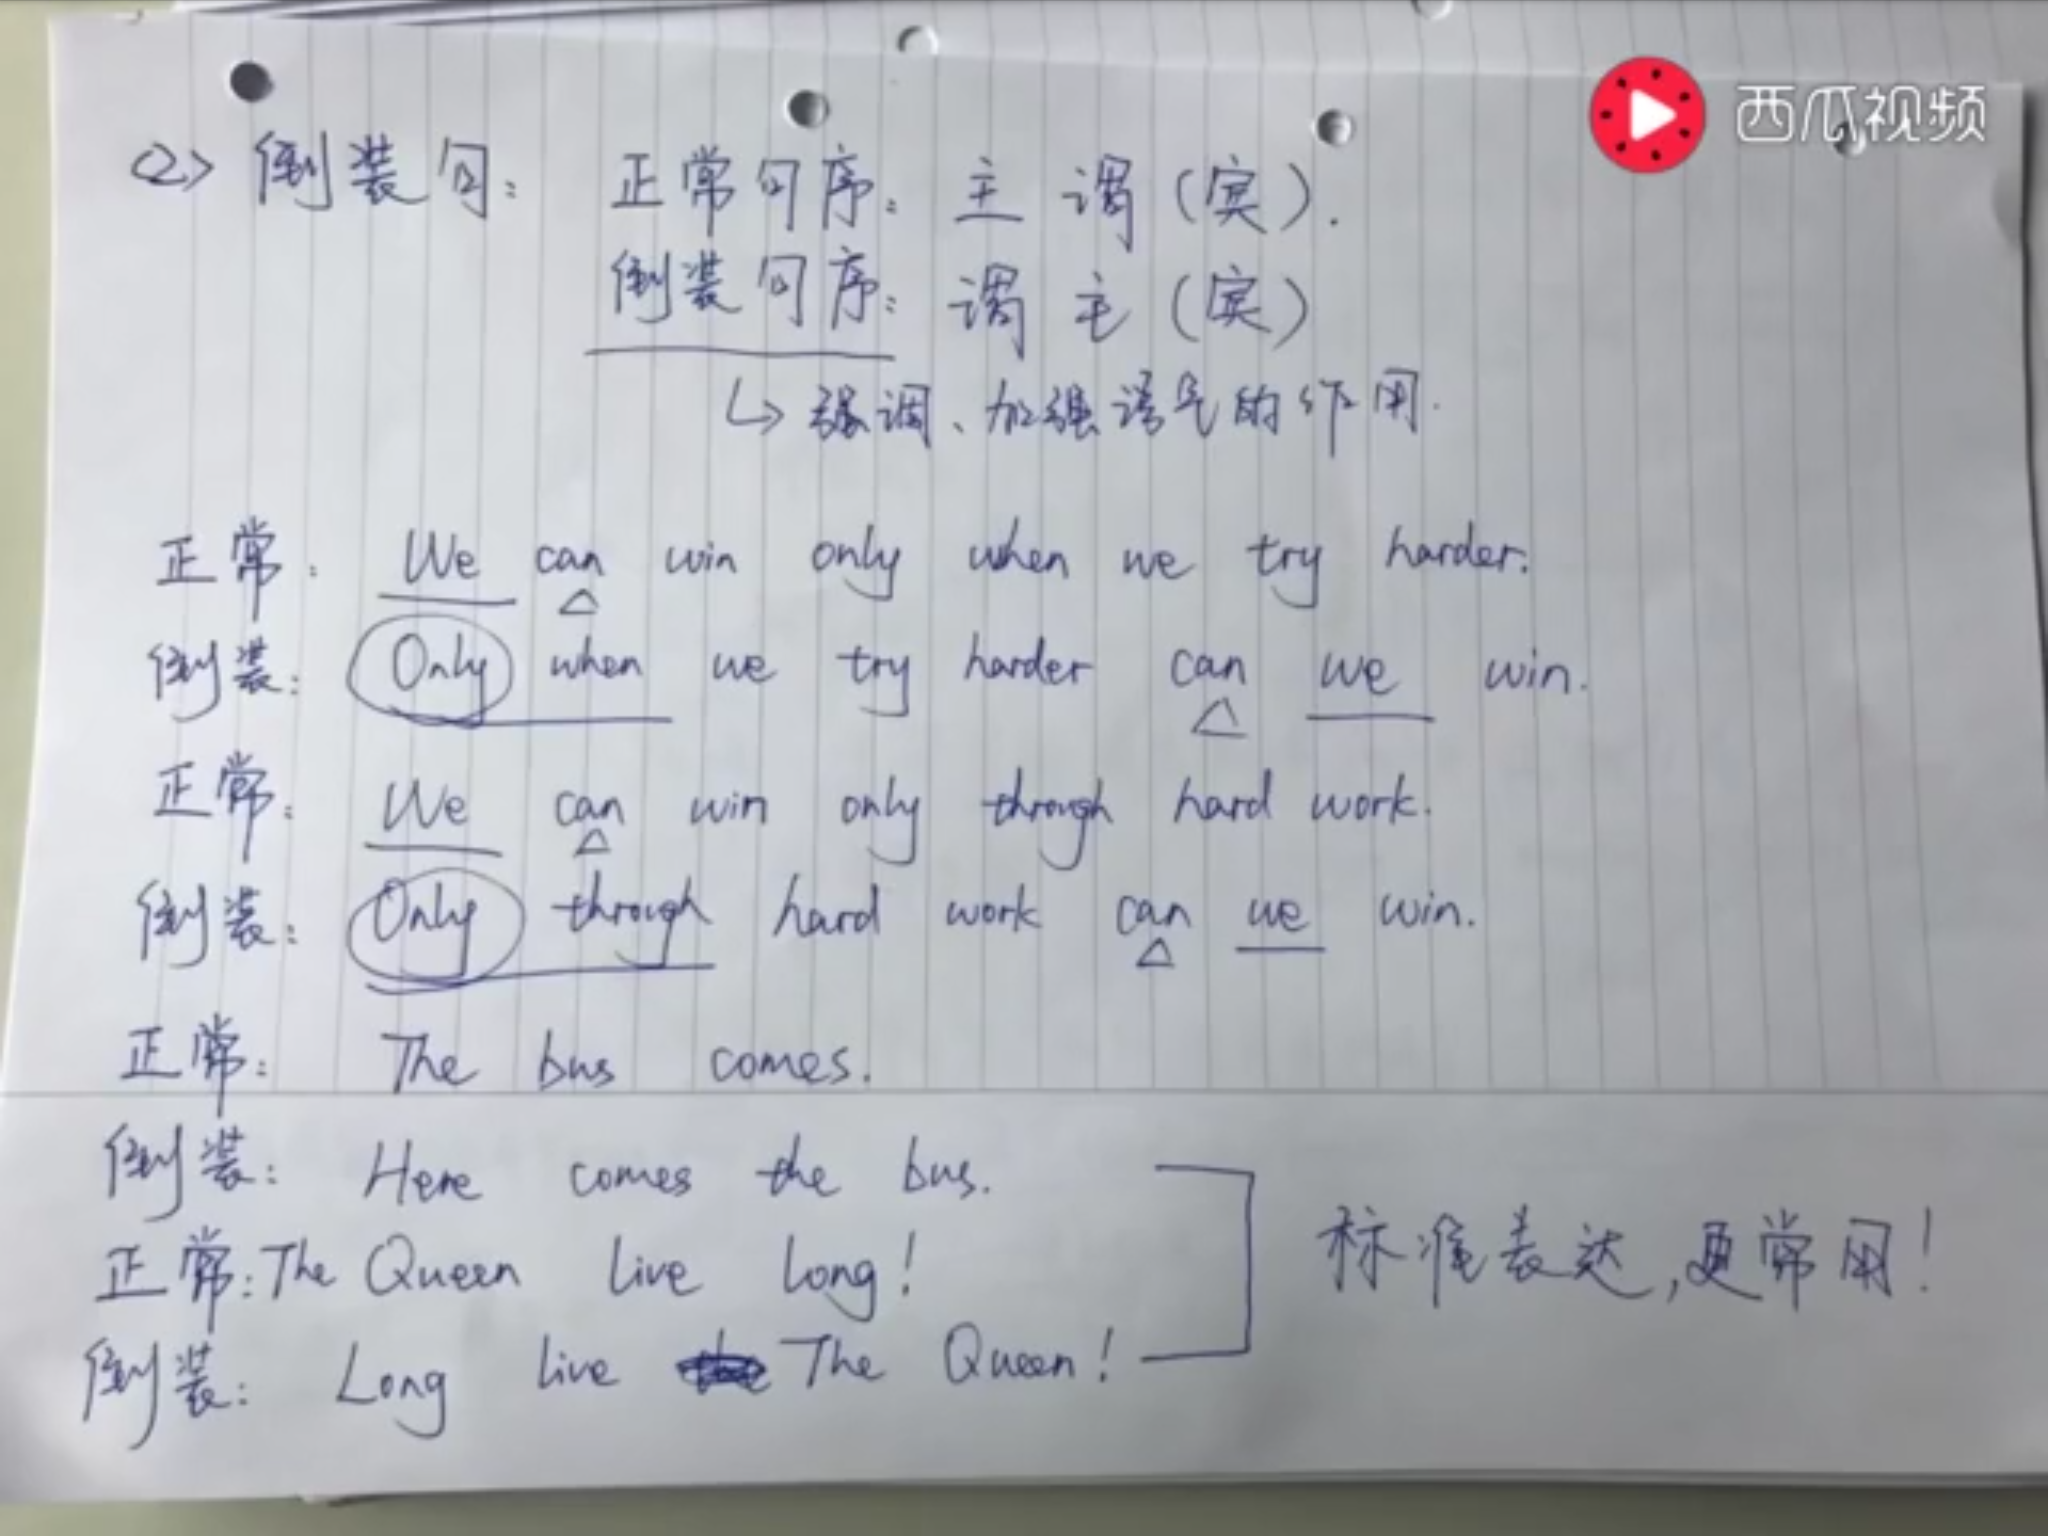 西瓜视频
<2> 倒装句: 正常句序: 主 谓 (宾).
倒装句序: 谓 主 (宾)
↳ 强调、加强语气的作用.
正常: We can win only when we try harder.
倒装: Only when we try harder can we win.
正常: We can win only through hard work.
倒装: Only through hard work can we win.
正常: The bus comes.
倒装: Here comes the bus.
正常: The Queen live long!
倒装: Long live The Queen!
标准表达,更常用!